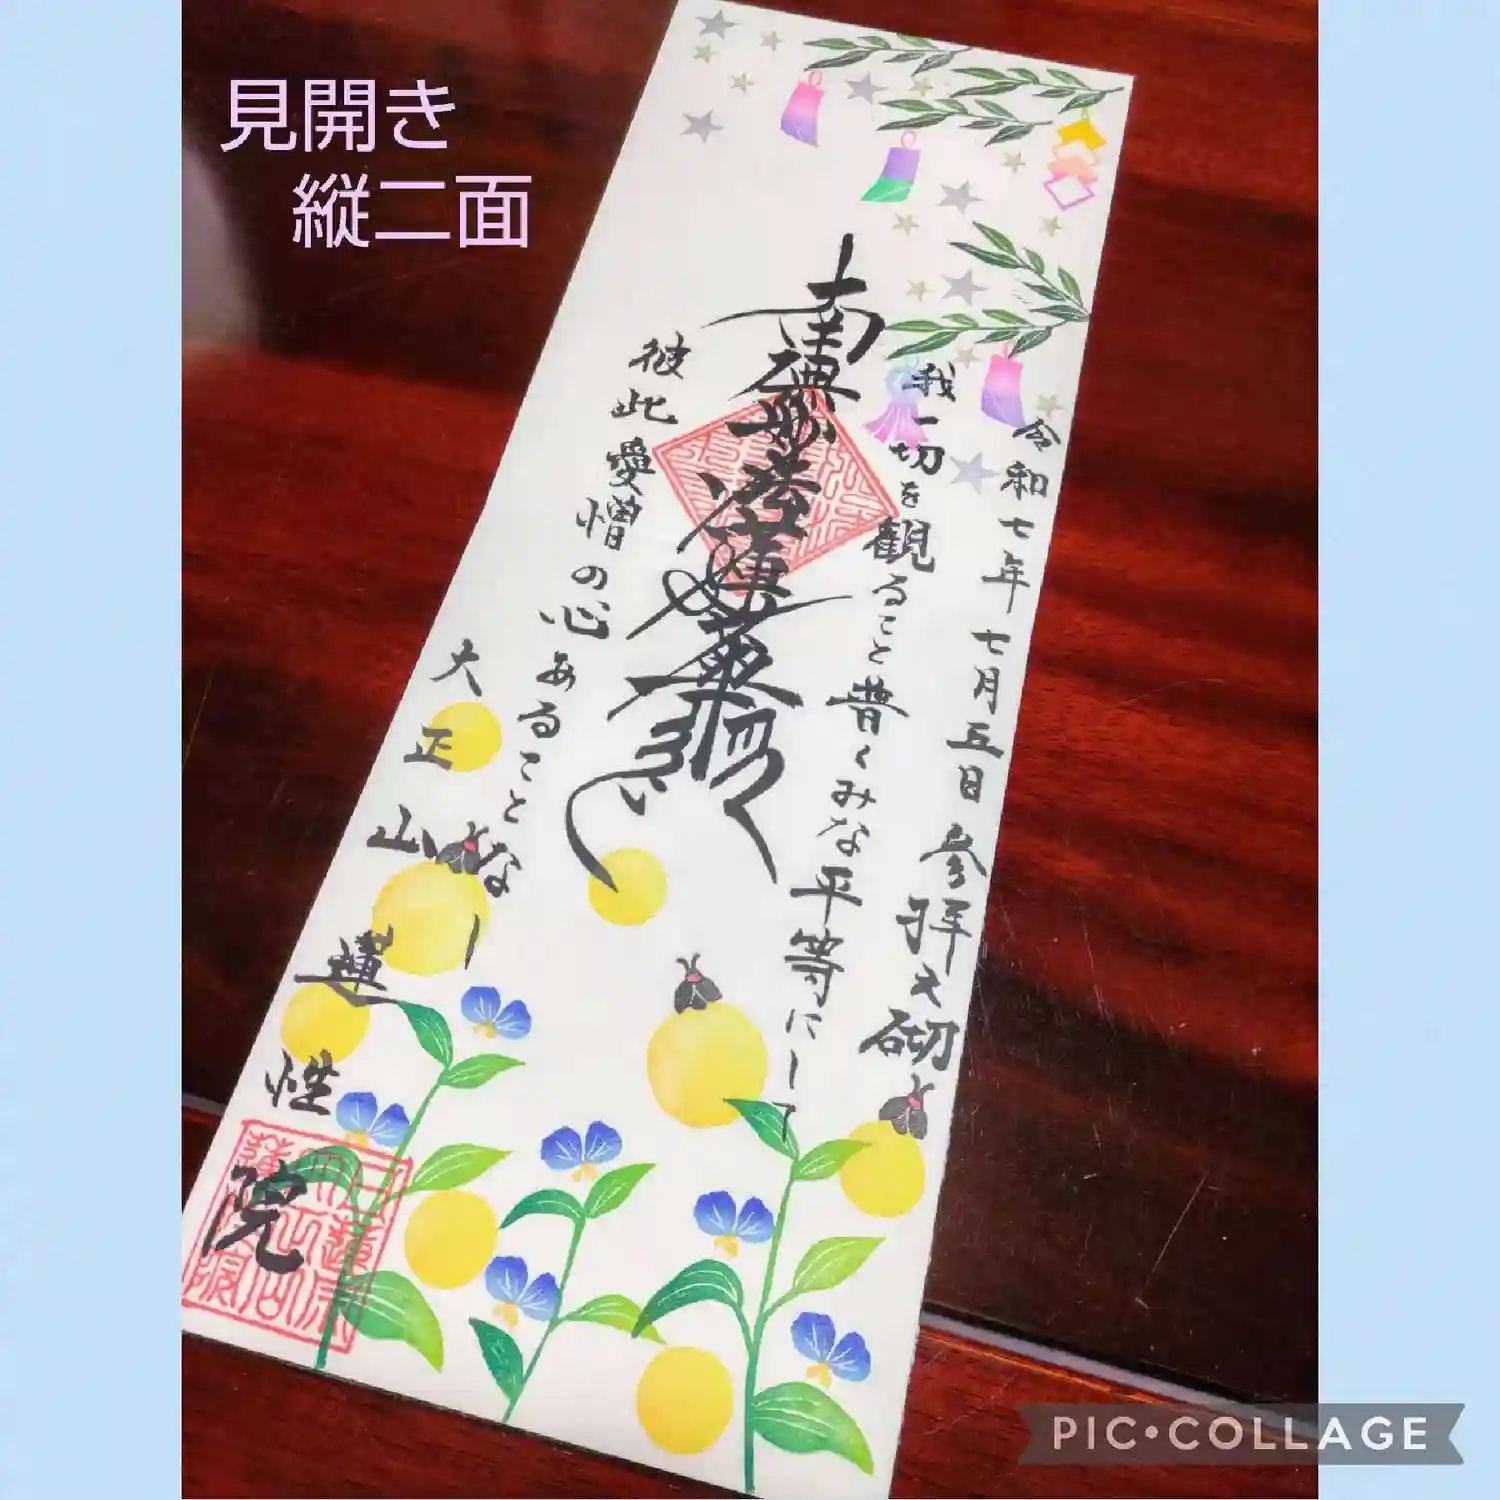 見開き
縦二面
令和七年七月五日 参拝之砌
我一切を観ること普くみな平等にして
南無妙法蓮華経
彼此愛憎の心あることなし
大正山 蓮性院
PIC•COLLAGE